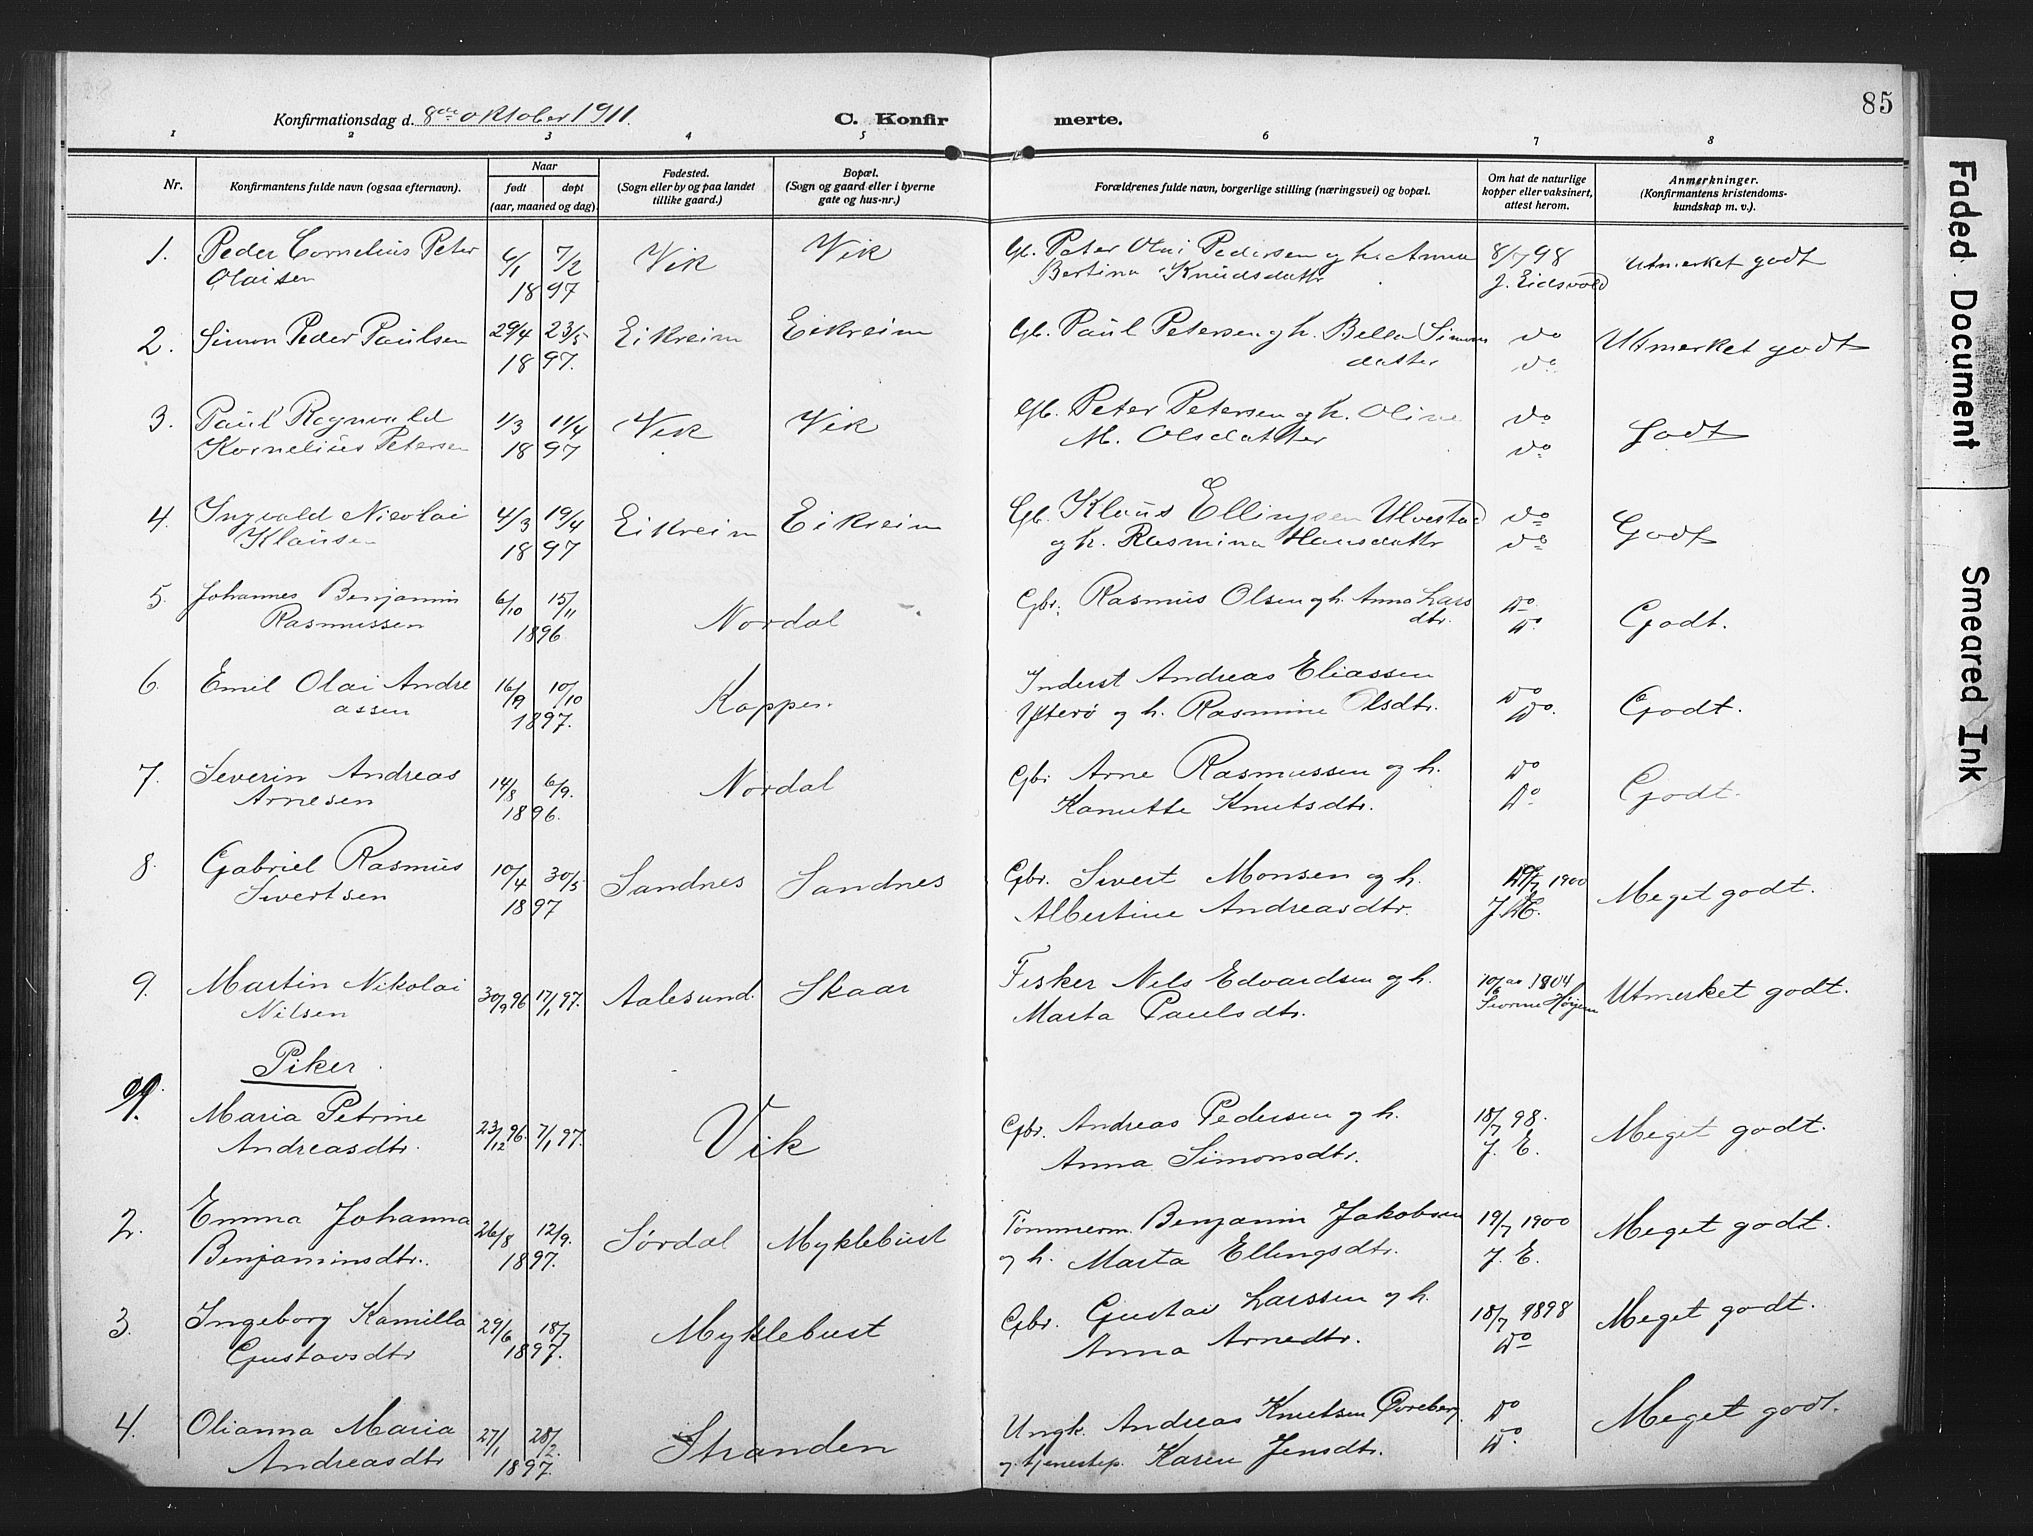 85
Konfirmationsdag d. 8de oktober 1911.
C. Konfirmerte.
1 2 3 4 5 6 7 8
Nr.
Konfirmantens fulde navn (ogsaa efternavn).
Naar
født døpt
(aar, maaned og dag).
Fødested.
(Sogn eller by og paa landet
tillike gaard.)
Bopæl.
(Sogn og gaard eller i byerne
gate og hus-nr.)
Forældrenes fulde navn, borgerlige stilling (næringsvei) og bopæl.
Om hat de naturlige
kopper eller vaksinert,
attest herom.
Anmerkninger.
(Konfirmantens kristendoms-
kundskap m. v.).
1. Peder Cornelius Peter 6/1 7/2 Vik Vik Gb. Peter Olai Pedersen og h. Anna 8/7 98 Utmerket godt
Olaisen 1897 Bertina Knudsdattr J. Eidsvold
2. Simon Peder Paulsen 29/4 23/5 Eikreim Eikreim Gb. Paul Petersen og h. Bella Simons do Utmerket godt
1897. datter do
3. Paul Ragnvald 1/3 11/4 Vik Vik Gb. Peter Petersen og h. Oline do Godt
Kornelius Petersen 1897 M. Olsdatter do
4. Ingvald Nicolai 4/3 19/4 Eikreim Eikreim Gb. Klaus Ellingsen Ulvestad do Godt
Klausen 1897 og h. Rasmina Hansdattr do
5. Johannes Benjamin 6/10 15/11 Nordal Gbr. Rasmus Olsen og h. Anna Lars do Godt.
Rasmussen 1896 dtr. do
6. Emil Olai Andre 16/9 10/10 Kopper. Inderst Andreas Eliassen do Godt.
assen 1897. Ytterø og h. Rasmine Olsdtr. do.
7. Severin Andreas 14/8 6/9. Nordal Gbr Arne Rasmussen og h. do Godt.
Arnesen 1896. Kanutte Knutsdtr. do.
8. Gabriel Rasmus 10/4 30/5 Sandnes Sandnes Gbr. Sivert Monsen og h. 1900 Meget godt.
Sivertsen 1897 Albertine Andreasdtr. J. E.
9. Martin Nikolai 30/9 96 17/1 97. Aalesund. Skaar Fisker Nils Edvardsen og h. 1904 Utmerket godt.
Nilsen Marta Paulsdtr.
Piker
1. Maria Petrine 23/12 96. 7/1 97. Vik Gbr. Andreas Pedersen og h. 18/7 98. Meget godt.
Andreasdtr. Anna Simonsdtr. J. E.
2. Emma Johanna 26/8 12/9. Sørdal Myklebust Tømmerm. Benjamin Jakobsen 19/7 1900 Meget godt.
Benjaminsdtr. 1897. og h. Marta Ellingsdtr. J. E.
3. Ingeborg Kamilla 29/6 18/7 Myklebust Gbr. Gustav Larssen og h. 18/7 1898 Meget godt.
Gustavsdtr 1897. Anna Arnedtr. do
4. Olianna Maria 27/1 28/2. Stranden Ungk. Andreas Knutsen Øvreberg. do Meget godt.
Andreasdtr 1897. og tjenestep. Karen Jensdtr. do.
Faded Document
Smeared Ink